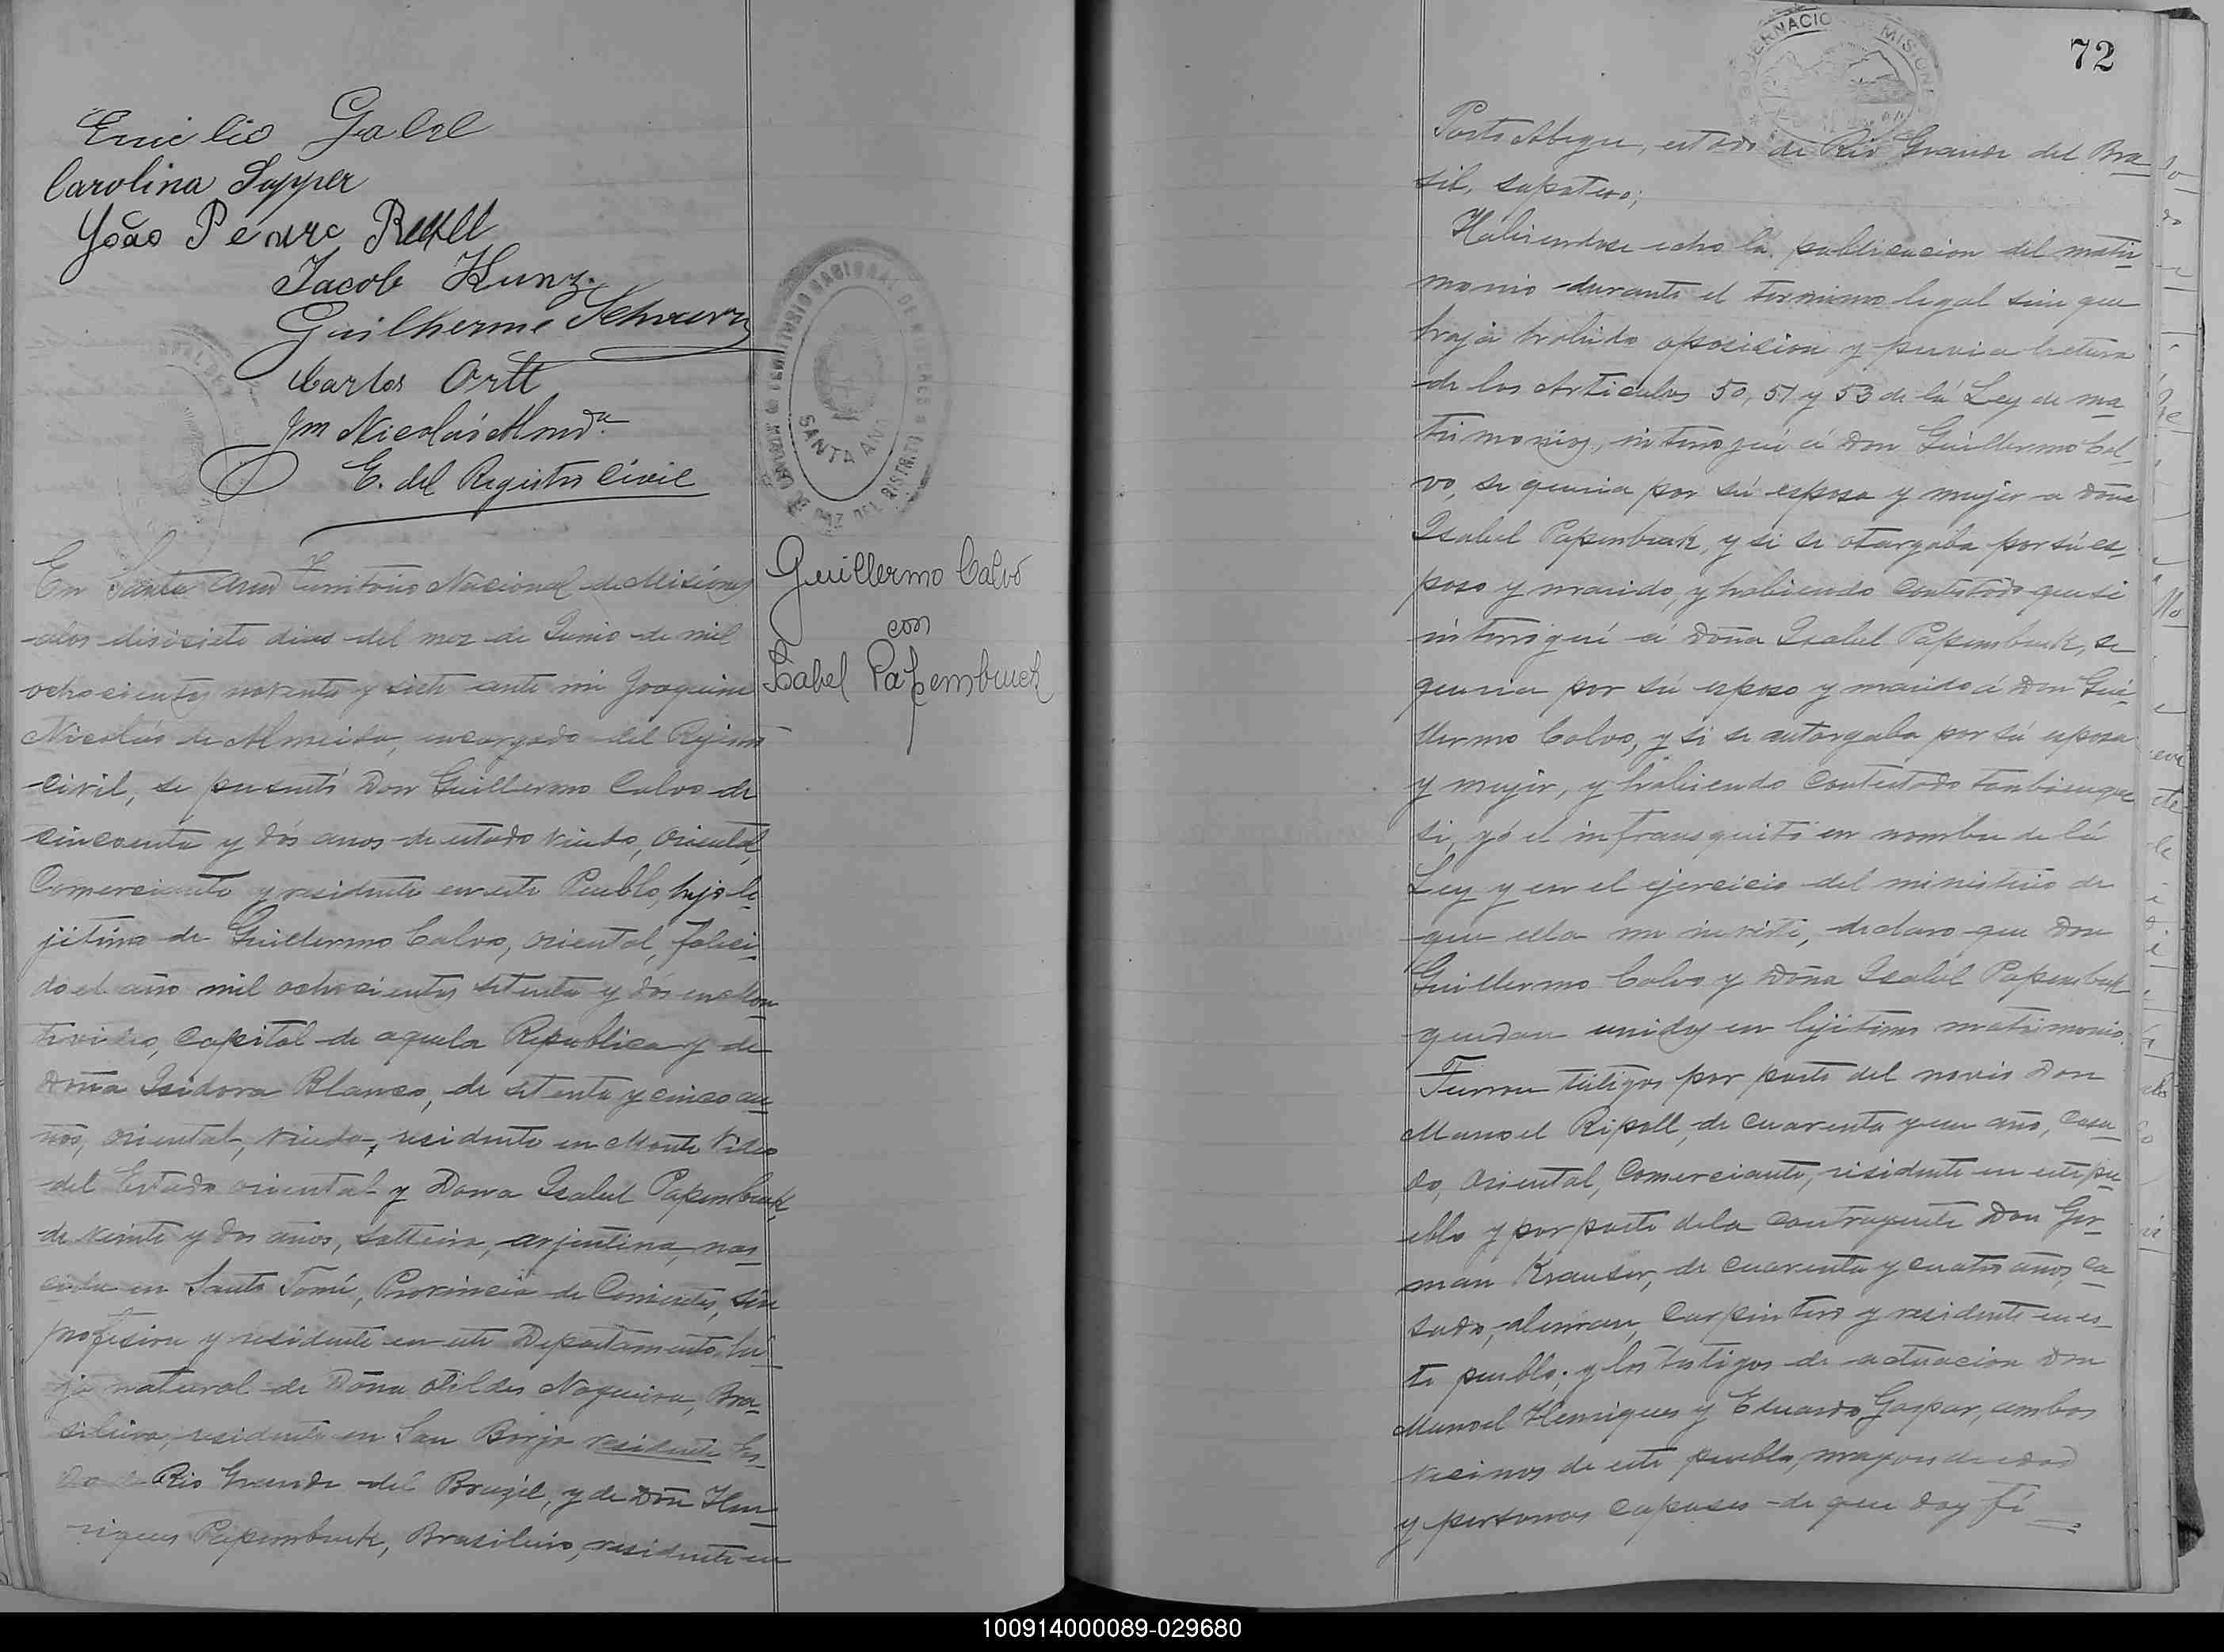 Emilio Gabel
Carolina Sapper
João Pedro
Jacob Kunz.
Guilherme
Carlos Ortt
Jm Nicolás Almda
E. del Registro Civil
JUZGADO DE PAZ DEL DISTRITO
SANTA ANA
Guillermo Calvo
con
Isabel Papembruck
En Santa Ana Territorio Nacional de Misiónes
alos disisiete dias del mez de Junio de mil
ochocientos noventa y siete ante mi Joaquim
Nicolás de Almeida, encargado del Rejistro
civil, se presentó Don Guillermo Calvo de
cincoenta y dós anos de estado viudo, oriental,
Comerciante y residente en este Pueblo, hijo le
jitimo de Guillermo Calvo, oriental, faleci
do el año mil ochocientos setenta y dós en Mon
tevideo, Capital de aquela Republica y de
Doña Isidora Blanco, de setenta y cinco an
nos, oriental, viuda, residente en Monte Video
del Estado oriental y Dona Isabel Papembruck,
de veinte y dos años, solteira, arjentina, nas
cida en Santo Tomé, Provincia de Corrientes, sin
profesion y residente en este Departamento, hi
ja natural de Doña Otildes Nogueira, Bra
sileira, residente en San Borja residente Es
do de Rio Grande del Brazil, y de Don Hen
riques Papembruck, Brasileiro, residente en
72
GOBERNACION DE MISIONES
Porto Alegre, estado de Rio Grande del Bra
sil, sapatero;
Habiendose echo la publicacion del matri
monio durante el termino legal sin que
haja habido oposicion y previa lectura
de los Articulos 50, 51 y 53 de lá Ley de ma
trimonios, interrogué á Don Guillermo Cal
vo, se queria por sú esposa y mujer a Doña
Isabel Papembruck, y si se otorgaba por sú es
poso y marido, y habiendo contestado que si
interrigué á Doña Isabel Papembruck, se
queria por sú esposo y marido á Don Gui
llermo Calvo, y si se autorgaba por sú esposa
y mujer, y habiendo contestado tambien que
si, yó el infransquito en nombre de lá
Ley y en el ejercicio del ministerio de
que ella me inviste, declaro que Don
Guillermo Calvo y Doña Isabel Papembruck
quedan unidos en lejitimo matrimonio.
Fueron téstigos por parte del novio Don
Manoel Ripoll, de cuarenta y un año, casa
do, oriental, Comerciante, residente en este pu
eblo y por parte dela contrayente Don Ger
man Krauser, de cuarenta y cuatro años, ca
sado, aleman, Carpintero y residente en es
te pueblo; y los testigos de actuacion Don
Manoel Henriques y Eduardo Gaspar, ambos
vecinos de este pueblo, mayores de edad
y personas capases de que doy fé
100914000089-029680